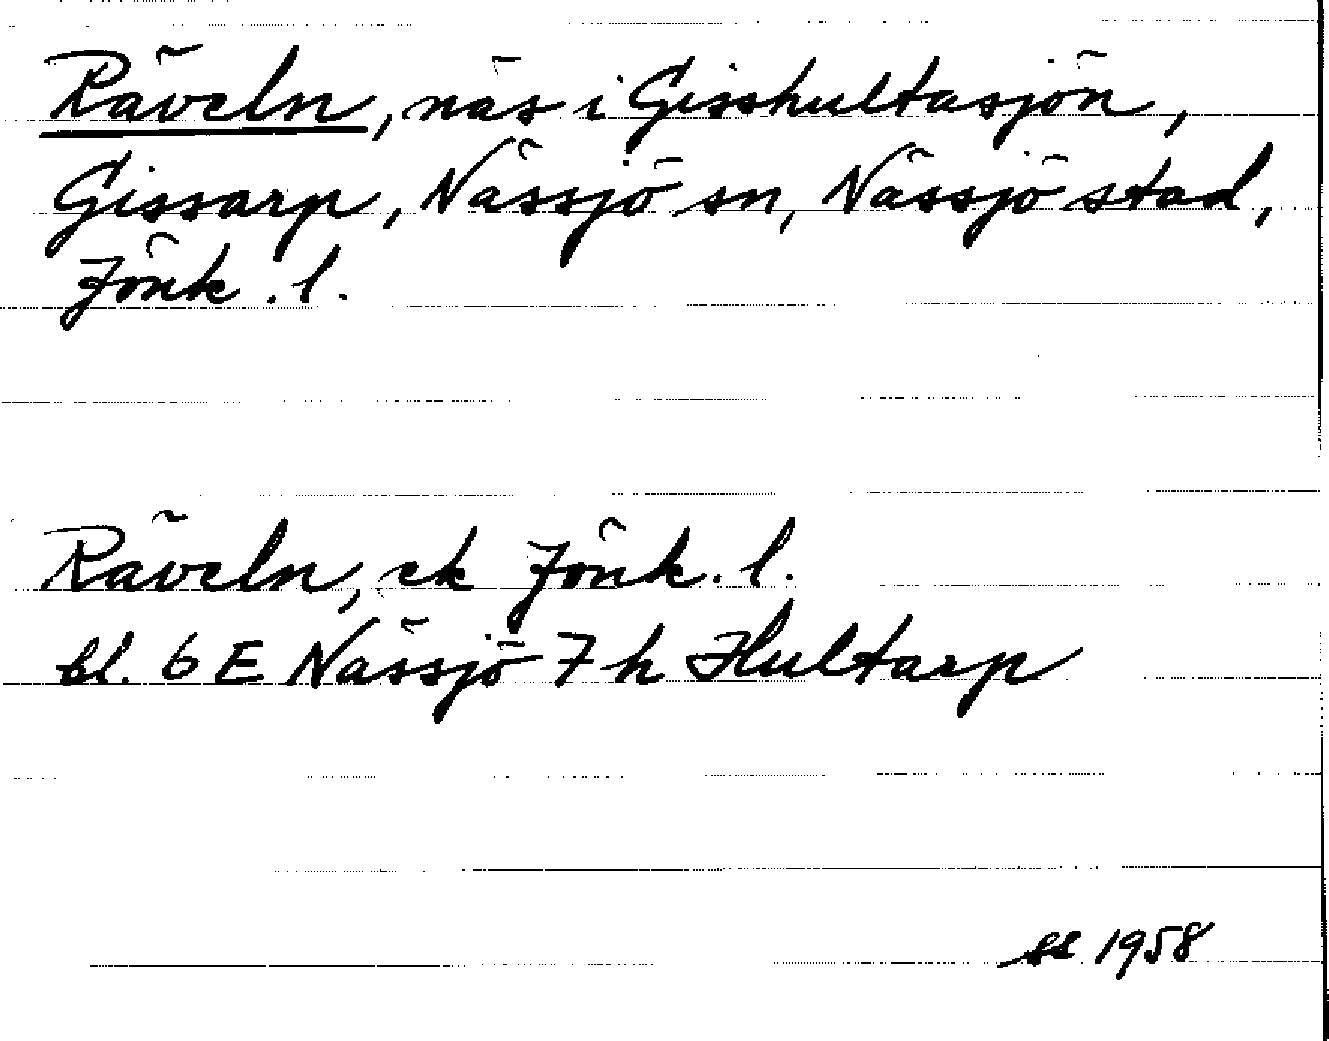 Räveln, näs i Gisshultasjön,
Gissarp, Nässjö sn, Nässjö stad,
Jönk. l.
Räveln, ek Jönk. l.
bl. 6 E Nässjö 7 h Hultarp
1958